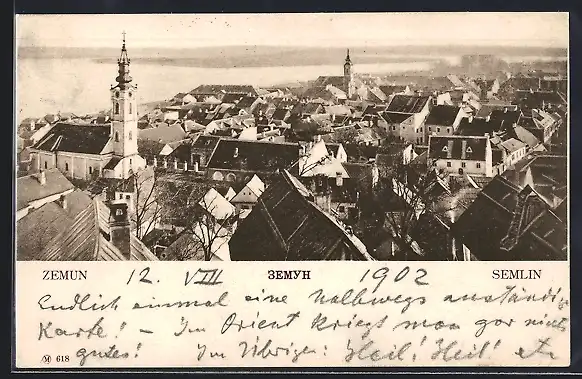 ZEMUN 12. VIII ЗЕМУН 1902 SEMLIN
Endlich einmal eine halbwegs anständige
Karte! – Im Orient kriegt man gar nichts
gutes! Im Übrigen: Heil! Heil! etc
M 618